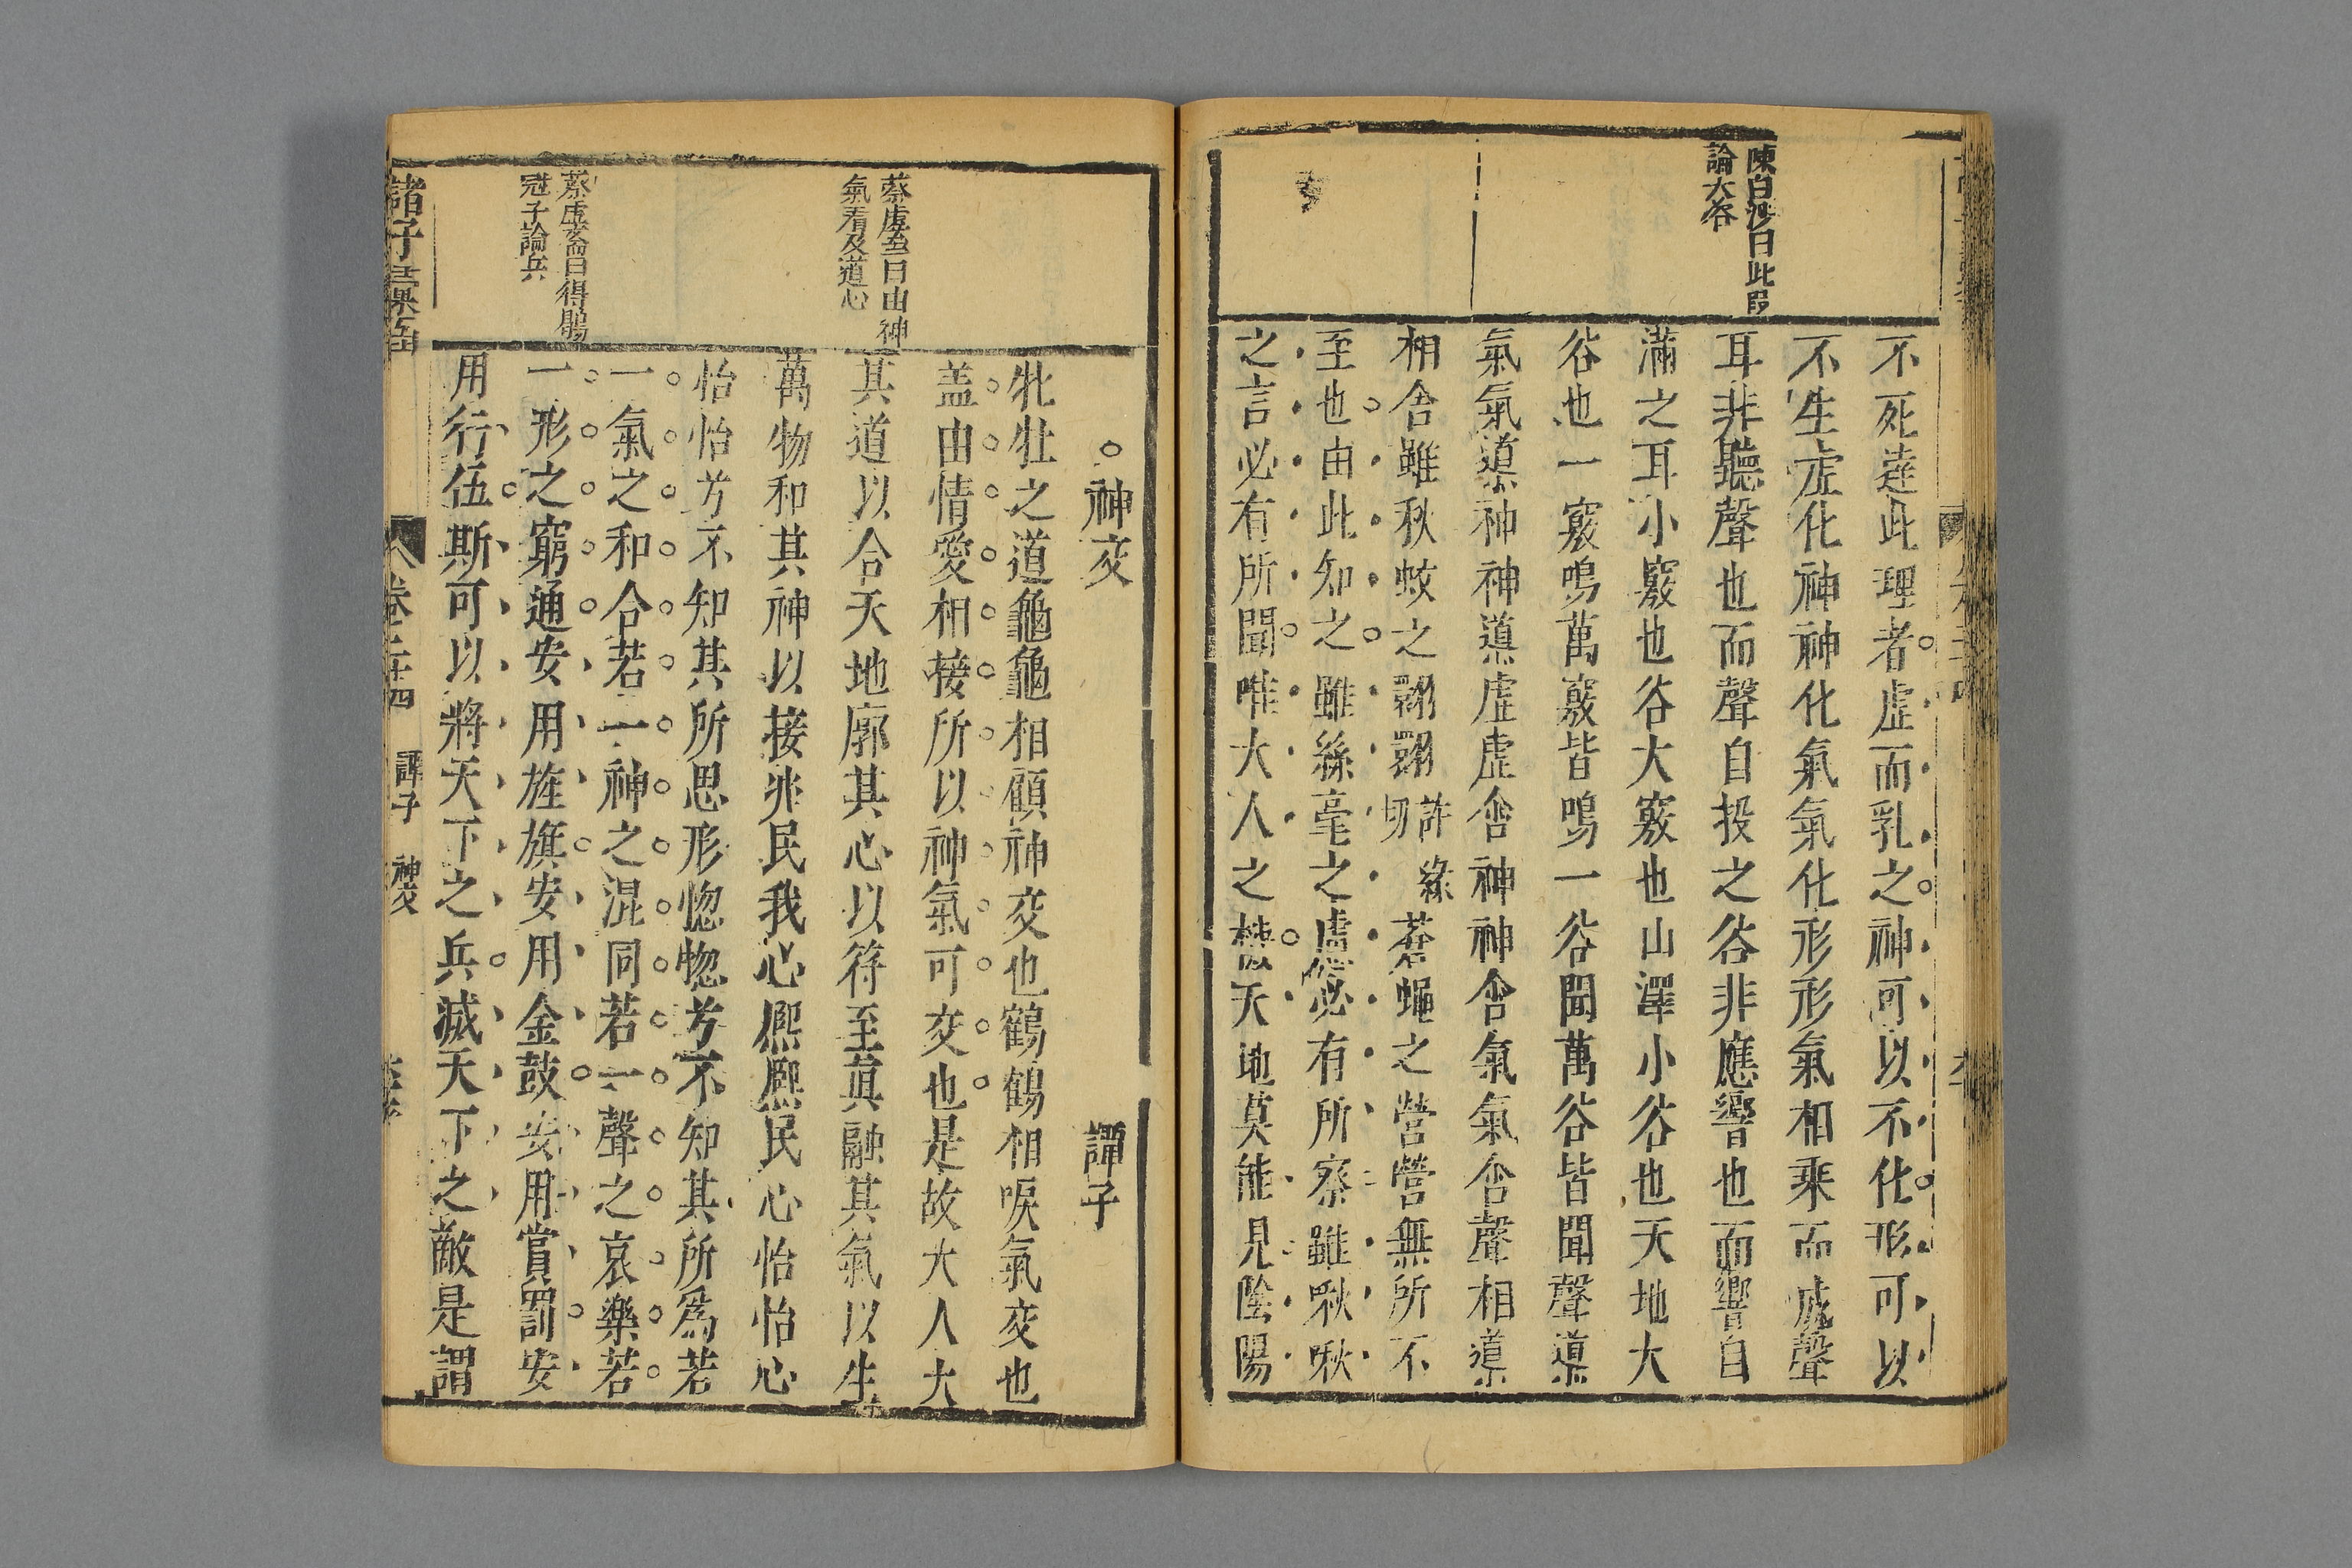 陳白沙曰此段
論大谷
不死達此理者虛而乳之神可以不化形可以
不生虛化神神化氣氣化形形氣相乘而成聲
耳非聽聲也而聲自投之谷非應響也而響自
滿之耳小竅也谷大竅也山澤小谷也天地大
谷也一竅鳴萬竅皆鳴一谷聞萬谷皆聞聲導
氣氣導神神導虛虛含神神含氣氣含聲相導
相含雖秋蚊之翾翾許緣切蒼蠅之營營無所不
至也由此知之雖絲毫之慮必有所察雖啾啾
之言必有所聞唯大人之機天地莫能見陰陽
蔡虛齋曰由神
氣看及道心
蔡虛齋曰得鶡
冠子論兵
○神交 譚子
牝牡之道龜龜相顧神交也鶴鶴相唳氣交也
盖由情愛相接所以神氣可交也是故大人大
其道以合天地廓其心以符至眞融其氣以生
萬物和其神以接兆民我心熈熈民心怡怡心
怡怡兮不知其所思形惚惚兮不知其所爲若
一氣之和合若一神之混同若一聲之哀樂若
一形之窮通安用旌旗安用金鼓安用賞罰安
用行伍斯可以將天下之兵滅天下之敵是謂
卷二十四 譚子 神交